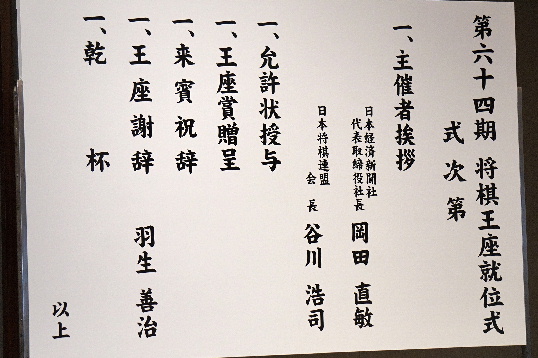 第六十四期 将棋王座就位式
式次第
一、主催者挨拶
日本経済新聞社
代表取締役社長 岡田 直敏
日本将棋連盟
会長 谷川 浩司
一、允許状授与
一、王座賞贈呈
一、来賓祝辞
一、王座謝辞 羽生 善治
一、乾杯
以上